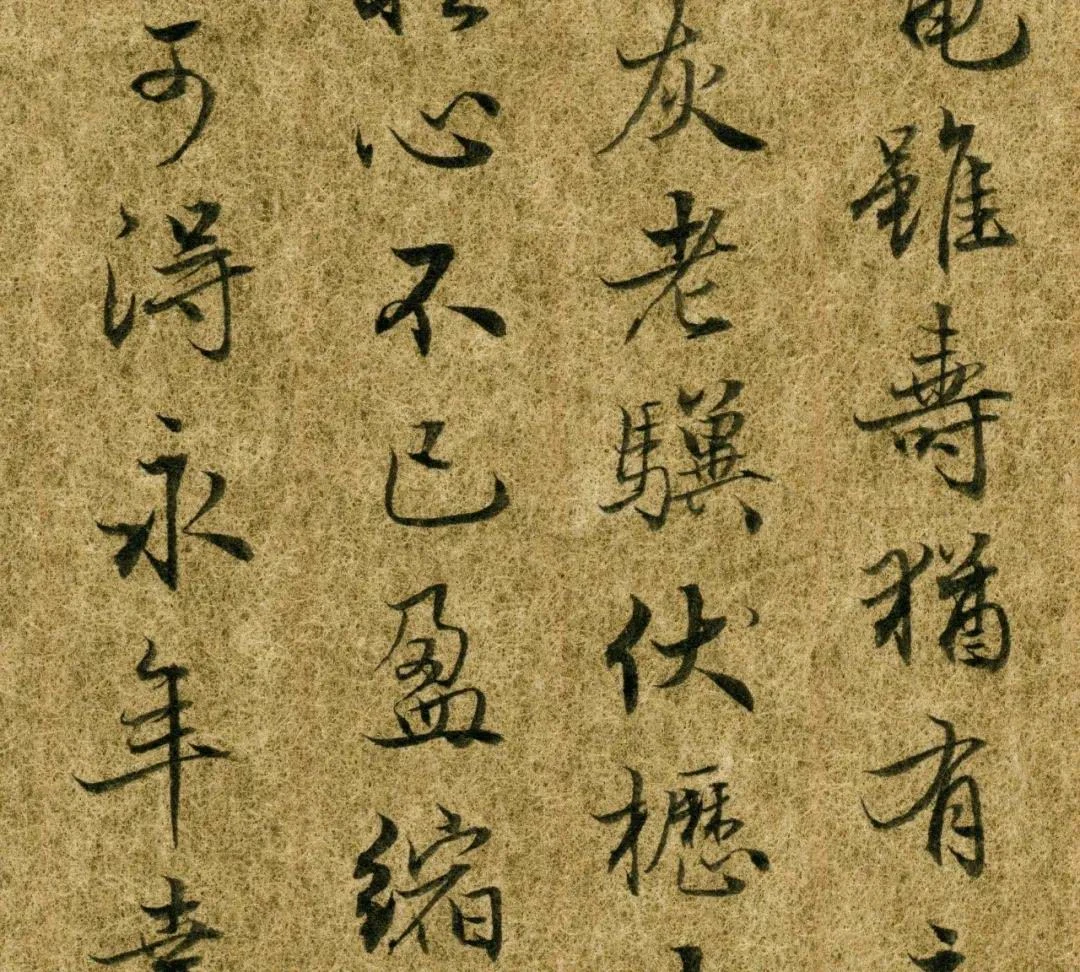 龜雖壽猶有
灰老驥伏櫪
心不已盈縮
可得永年